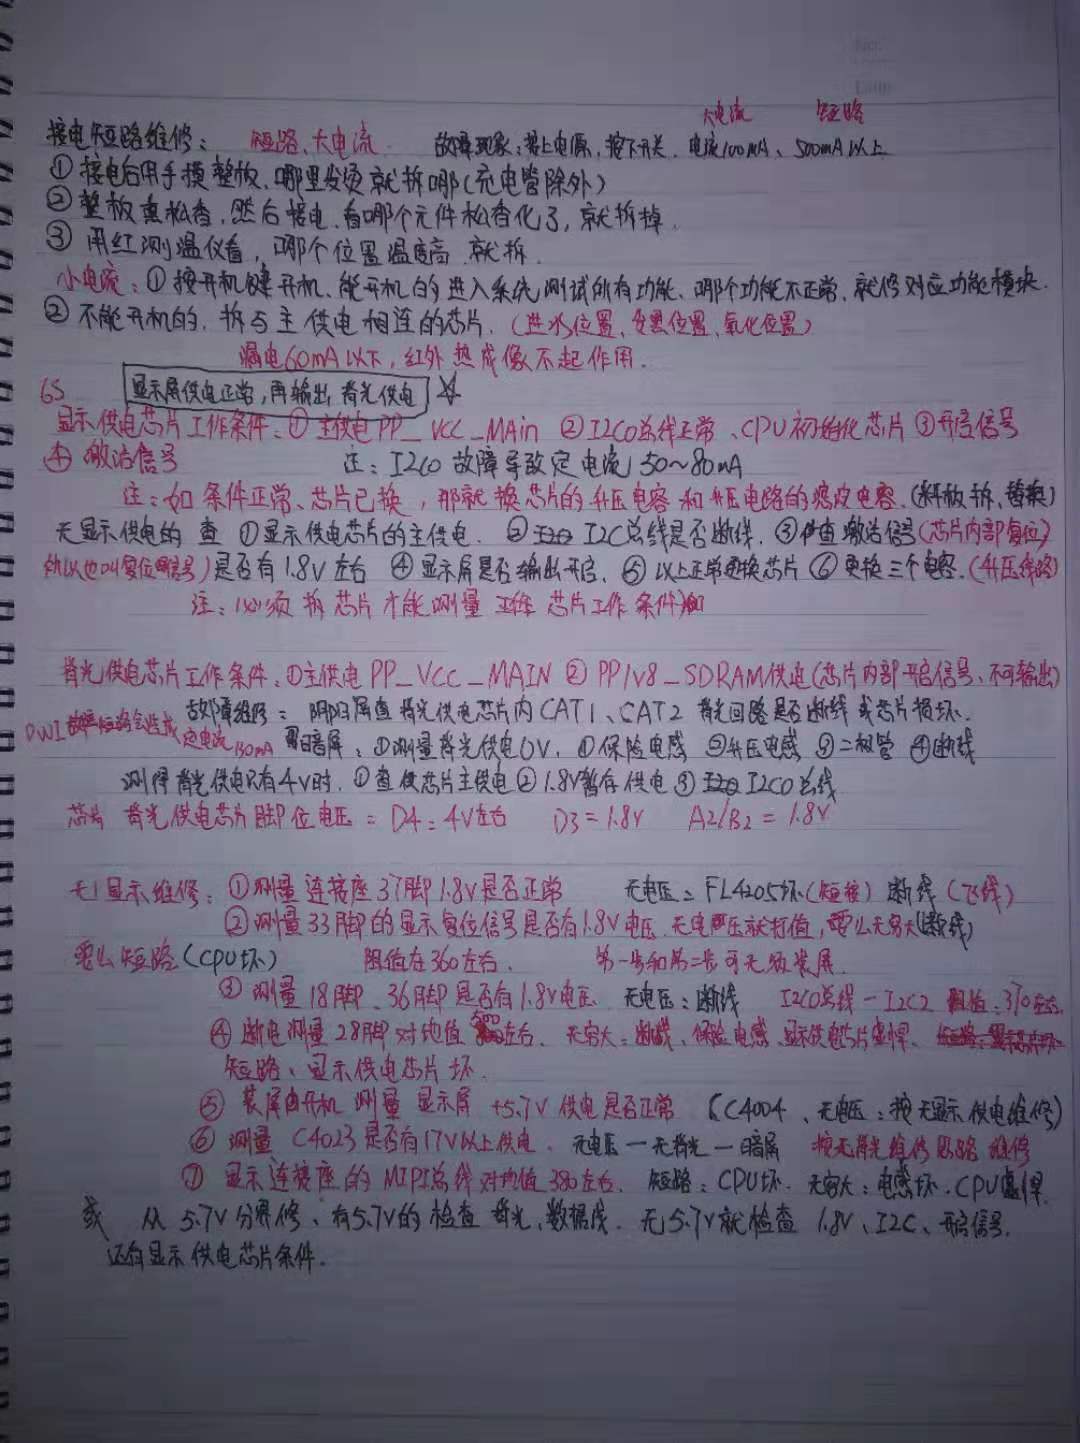 大电流 短路
接电短路维修: 短路、大电流. 故障现象:接上电源,按下开关,电流100mA、500mA以上
① 接电后用手摸整板,哪里发烫就拆哪(充电管除外)
② 整板熏松香,然后接电,看哪个元件松香化了,就拆掉.
③ 用红测温仪看,哪个位置温度高,就拆.
小电流:① 按开机键开机、能开机的进入系统测试所有功能、哪个功能不正常,就修对应功能模块.
② 不能开机的,拆与主供电相连的芯片.(进水位置、受摔位置、氧化位置)
漏电60mA以下,红外热成像不起作用.
6S 显示屏供电正常,再输出背光供电 ☆
显示供电芯片工作条件:① 主供电PP_VCC_MAin ② I2C0总线正常、CPU初始化芯片 ③开启信号
④ 激活信号 注:I2C0故障导致定电流50~80mA
注:如条件正常、芯片已换,那就换芯片的升压电容和升压电路的滤波电容.(料板拆、替换)
无显示供电的查 ①显示供电芯片的主供电. ② I2C总线是否断线. ③检查激活信号(芯片内部复位)
所以也叫复位信号)是否有1.8V左右 ④ 显示屏是否输出开启. ⑤ 以上正常更换芯片 ⑥ 更换三个电容.(升压线路)
注:必须拆芯片才能测量芯片工作条件
背光供电芯片工作条件:①主供电PP_VCC_MAIN ② PP1V8_SDRAM供电(芯片内部开启信号、不可输出)
故障维修: 阴阳屏查背光供电芯片内CAT1、CAT2背光回路是否断线或芯片损坏.
DWI 定电流130mA 暗屏:①测量背光供电0V,①保险电感 ②升压电感 ③二极管 ④断线
测得背光供电只有4V时,①查供芯片主供电 ② 1.8V暂存供电 ③ I2C0总线
芯片 背光供电芯片脚位电压: D4:4V左右 D3=1.8V A2/B2=1.8V
无显示维修:① 测量连接座37脚1.8V是否正常 无电压:FL4205坏(短接) 断线(飞线)
② 测量33脚的显示复位信号是否有1.8V电压.无电压就打值,要么无穷大(断线)
要么短路(CPU坏) 阻值在360左右. 第一步和第二步可无须装屏.
③ 测量18脚、36脚是否有1.8V电压 无电压:断线 I2C0总线—I2C2 阻值:370左右.
④ 断电测量28脚对地值500左右. 无穷大:断线、保险电感、显示供电芯片虚焊.
短路、显示供电芯片坏.
⑤ 装屏开机测量显示屏+5.7V供电是否正常 (C4004、无电压:按无显示供电维修)
⑥ 测量C4023是否有17V以上供电. 无电压—无背光—暗屏 按无背光维修思路维修
⑦ 显示连接座的MIPI总线对地值380左右. 短路:CPU坏. 无穷大:电感坏.CPU虚焊.
或 从5.7V分界修、有5.7V的检查背光、数据线. 无5.7V就检查1.8V、I2C、开启信号.
还有显示供电芯片条件.